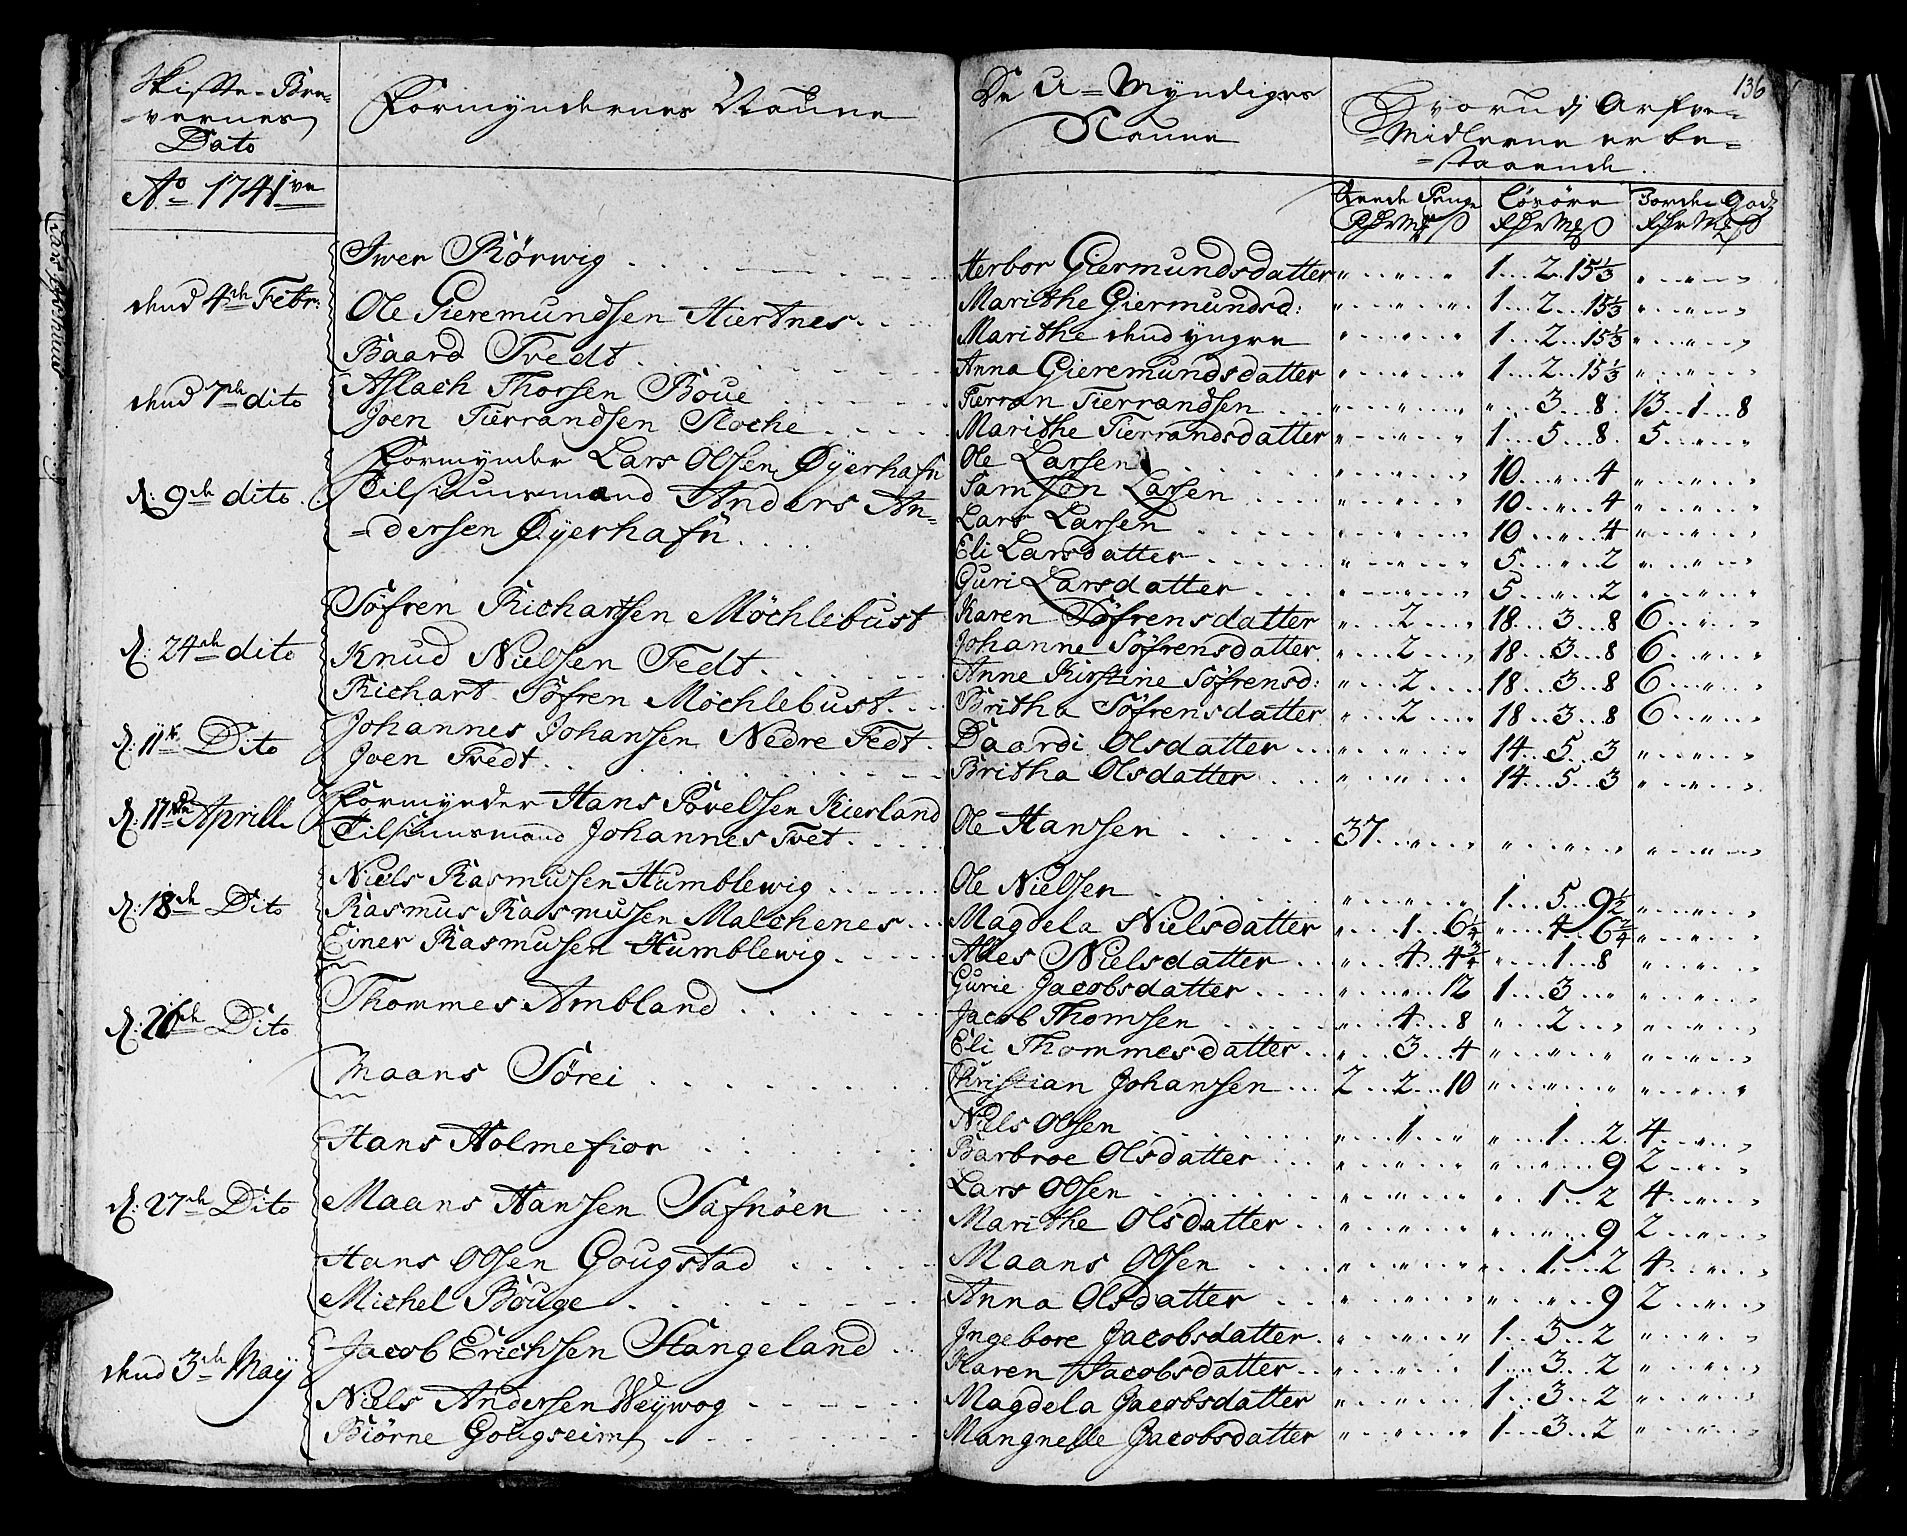 136
Skifte-Bre-
vernes
Dato
Formyndernes Naune
De U=Myndiges
Naune
Hvorudj Arfve-
=Midlerne er be-
=staaende.
Ao 1741ve
Reede Penge Løsøre Jorde-Godz
Rdr Mk ß Rdr Mk ß Rdr Mk ß
Iwer Rörwig
Herbor Giermundsdatter " " " 1 2 15⅓ " " "
dend 4de Febr:
Ole Gieremundsen Hiertnes
Marithe Giermundsd: " " " 1 2 15⅓ " " "
Marithe dend yngre " " " 1 2 15⅓ " " "
Baard Tvedt
Anna Gieremundsdatter " " " 1 2 15⅓ " " "
dend 7de dito
Aslach Thorsen Boue
Tierran Tierrandsen " " " " 3 8 13 1 8
Joen Tierrandsen Floche
Marithe Tierrandsdatter " " " 1 5 8 5 " "
Formynder Lars Olsen Øyerhafn
Ole Larsen " " " 10 " 4 " " "
d: 9de dito
Tilsiunsmand Anders An-
Samson Larsen " " " 10 " 4 " " "
=dersen Øyerhafn
Lars Larsen " " " 10 " 4 " " "
Eli Larsdatter " " " 5 " 2 " " "
Guri Larsdatter " " " 5 " 2 " " "
Söfren Richartsen Möchlebust
Karen Söfrensdatter " 2 " 18 3 8 6 " "
d: 24de dito
Knud Nielsen Tedt
Johanne Söfrensdatter " 2 " 18 3 8 6 " "
Anne Kirstine Söfrensd: " 2 " 18 3 8 6 " "
Richart Söfren Möchlebust
Britha Söfrensdatter " 2 " 18 3 8 6 " "
d: 11te Dito
Johannes Johansen Nedre Tedt
Daardi Olsdatter " " " 14 5 3 " " "
Joen Tvedt
Britha Olsdatter " " " 14 5 3 " " "
d: 17de Aprill
Formynder Hans Povelsen Kierland
Tilsiunsmand Johannes Tvet
Ole Hansen 37 " " " " " " " "
Niels Rasmussen Humblewig
Ole Nielsen " " " 1 5 9½ " " "
d: 18de Dito
Rasmus Rasmussen Malchenes
Magdela Nielsdatter " 1 6¼ " 4 6¾ " " "
Einer Rasmussen Humblewig
Alles Nielsdatter " 4 4¾ " 1 8 " " "
Gurie Jacobsdatter " " 12 1 3 " " " "
d: 26de Dito
Thommes Ambland
Jacob Thomsen " 4 8 " 2 " " " "
Eli Thommesdatter " 3 4 " " " " " "
Maans Sörei
Christian Johansen 2 2 10 " " " " " "
Hans Holmefior
Niels Olsen " 1 " " 1 2 4 " "
Barbroe Olsdatter " " " " " 9 2 " "
d: 27de Dito
Maans Hansen Safnöen
Lars Olsen " " " " 1 2 4 " "
Marithe Olsdatter " " " " " 9 2 " "
Hans Olsen Gougstad
Maans Olsen " " " " 1 2 4 " "
Michel Bouge
Anna Olsdatter " " " " " 9 2 " "
Jacob Erichsen Stangeland
Ingebore Jacobsdatter " " " 1 3 2 " " "
dend 3de May
Karen Jacobsdatter " " " 1 3 2 " " "
Niels Andersen Weywog
Magdela Jacobsdatter " " " 1 3 2 " " "
Biörne Gougseim
Mangnelle Jacobsdatter " " " 1 3 2 " " "